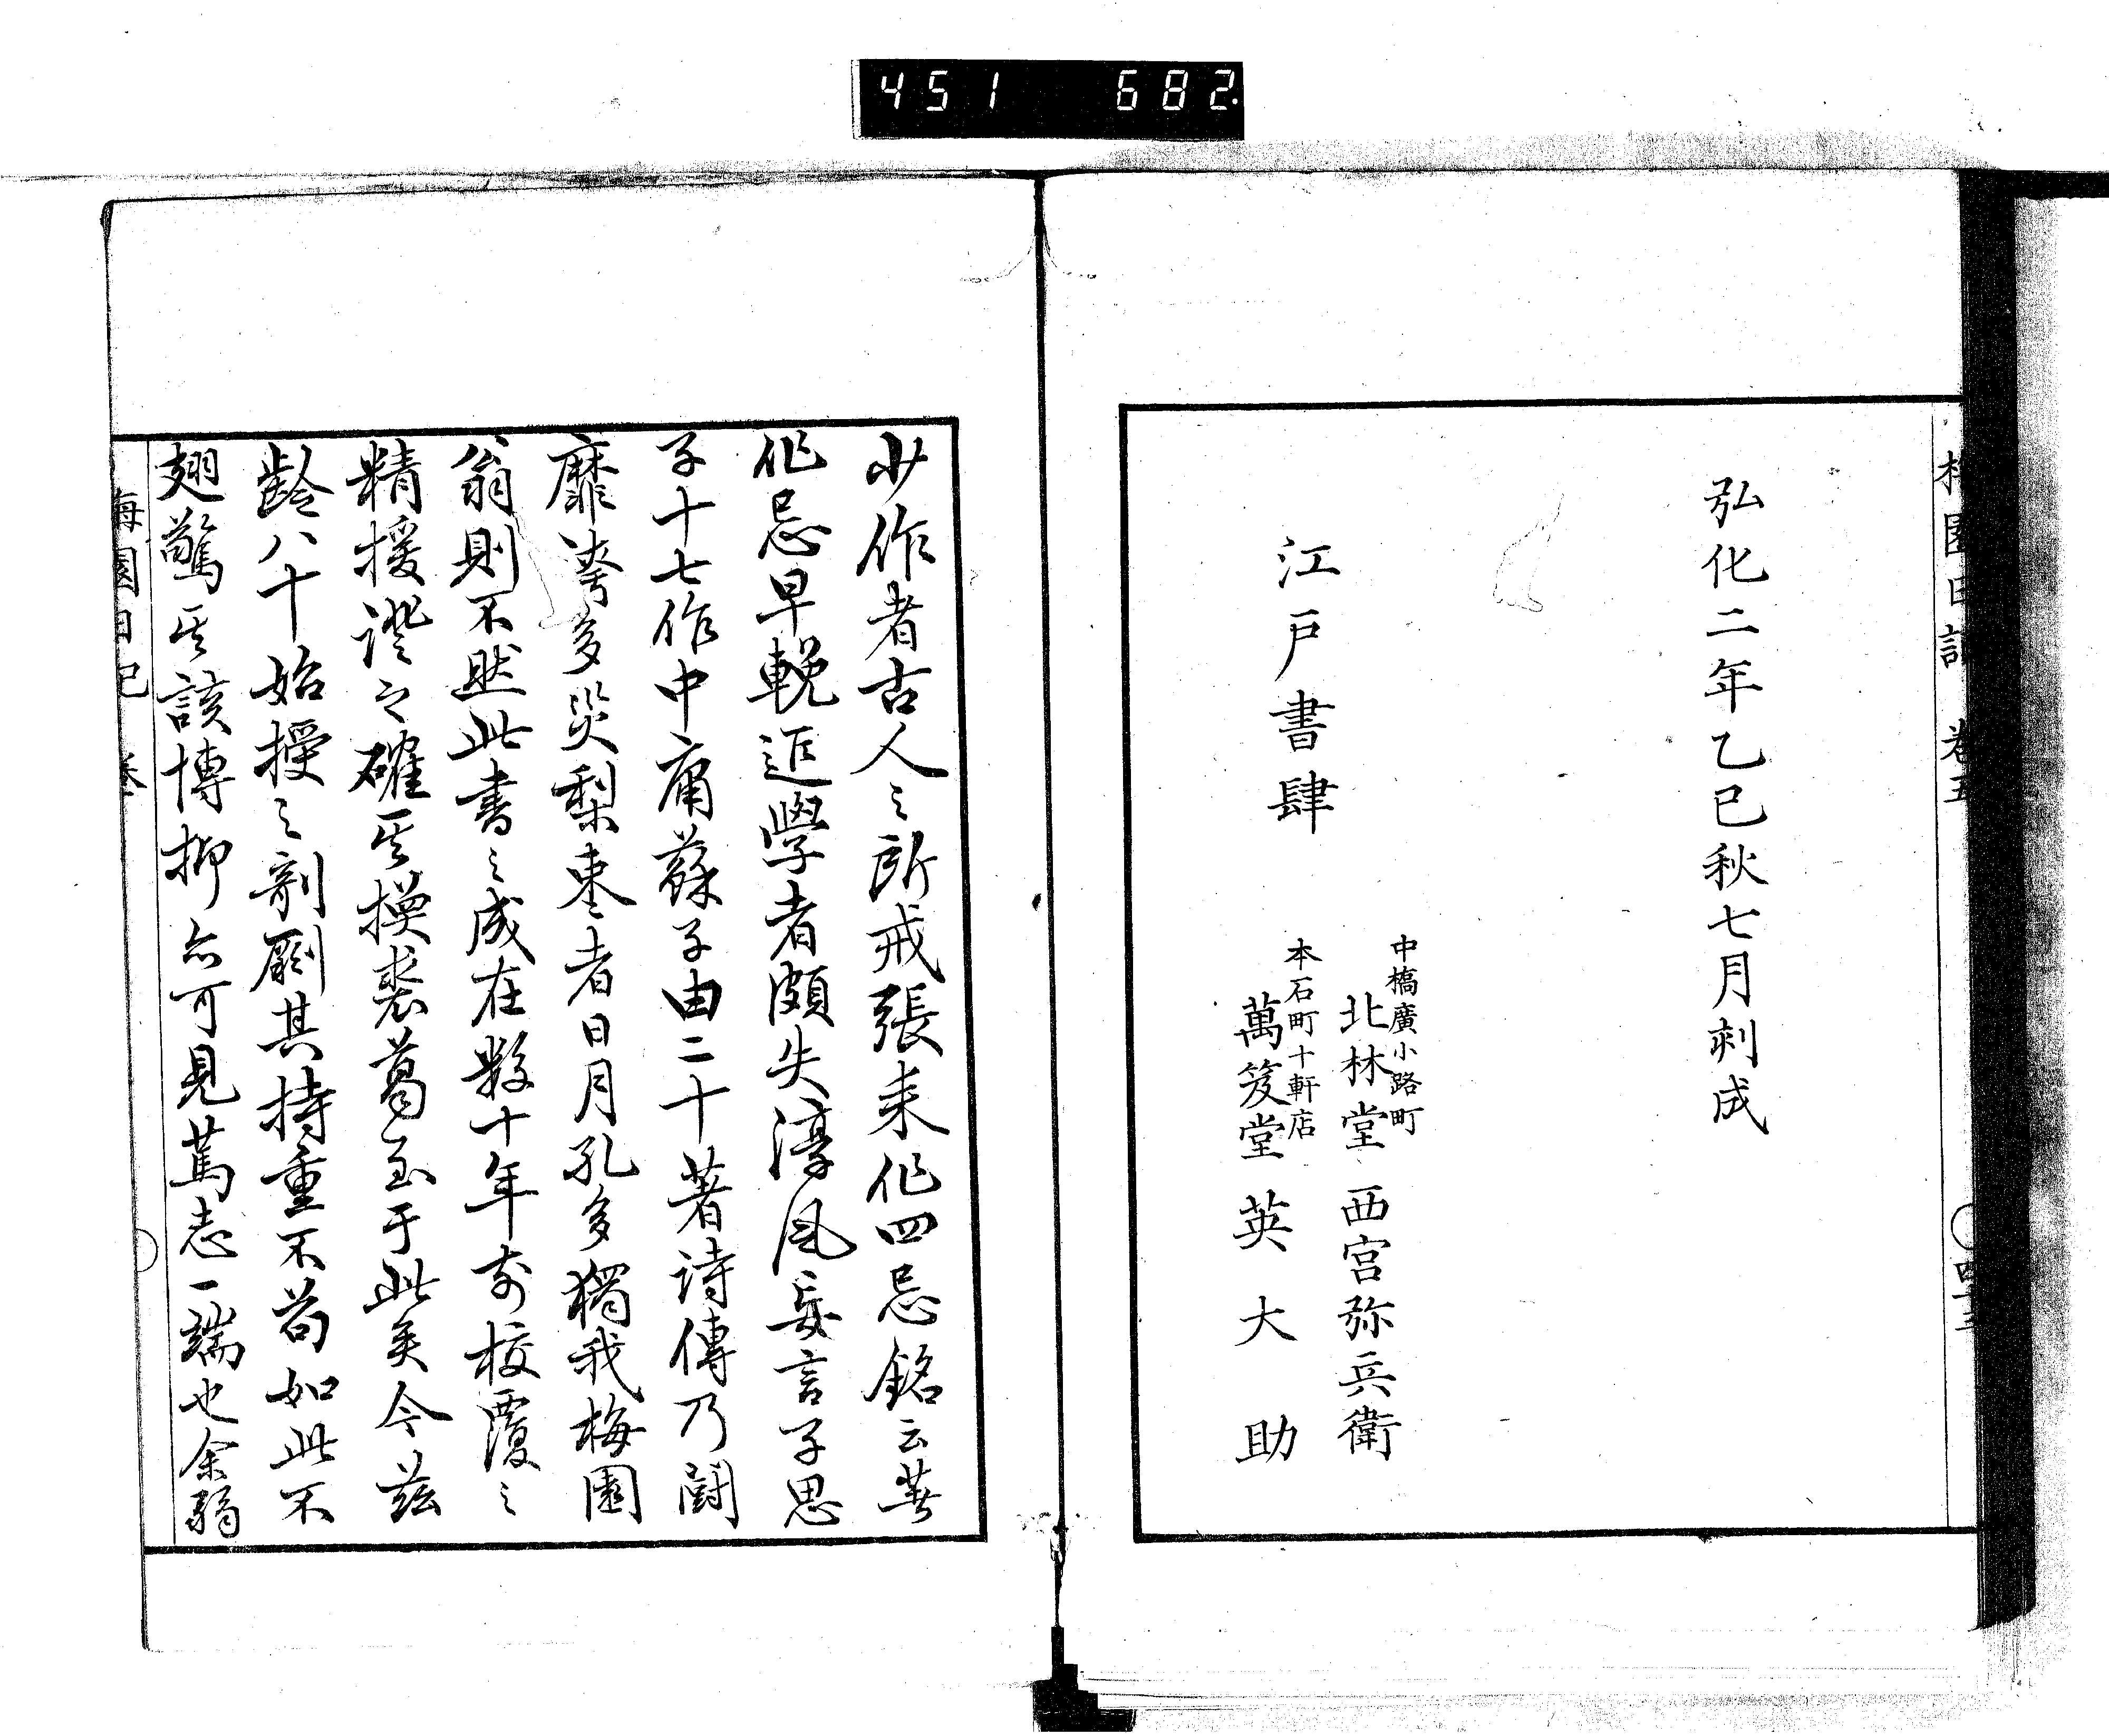 451 682.
梅園日記 卷五 四十三
弘化二年乙巳秋七月刺成
江戸書肆
中橋廣小路町
北林堂 西宮弥兵衛
本石町十軒店
萬笈堂 英大助
少作者古人之所戒張耒作四忌銘云著
作忌早輓近學者頗失淳風妄言子思
子十七作中庸蘇子由二十著詩傳乃鬪
靡誇多災梨棗者日月孔多獨我梅園
翁則不然此書之成在數十年前校覆之
精援證之確其換裘葛至于此矣今茲
齡八十始授之剞劂其持重不苟如此不
翅驚其該博抑亦可見篤志一端也余弱
梅園日記 卷